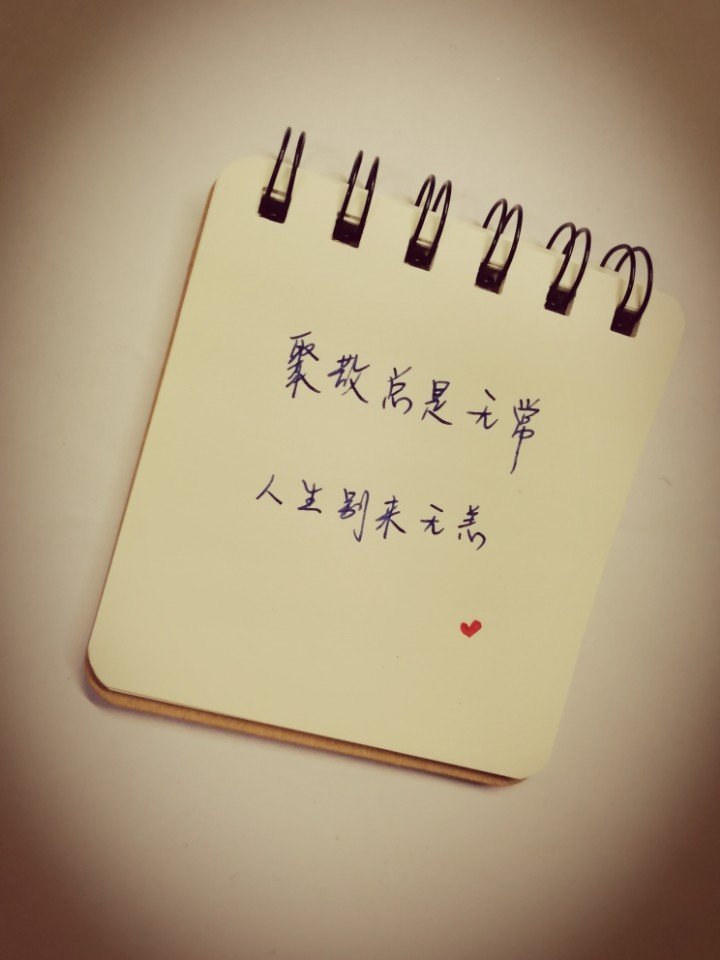 聚散总是无常
人生别来无恙